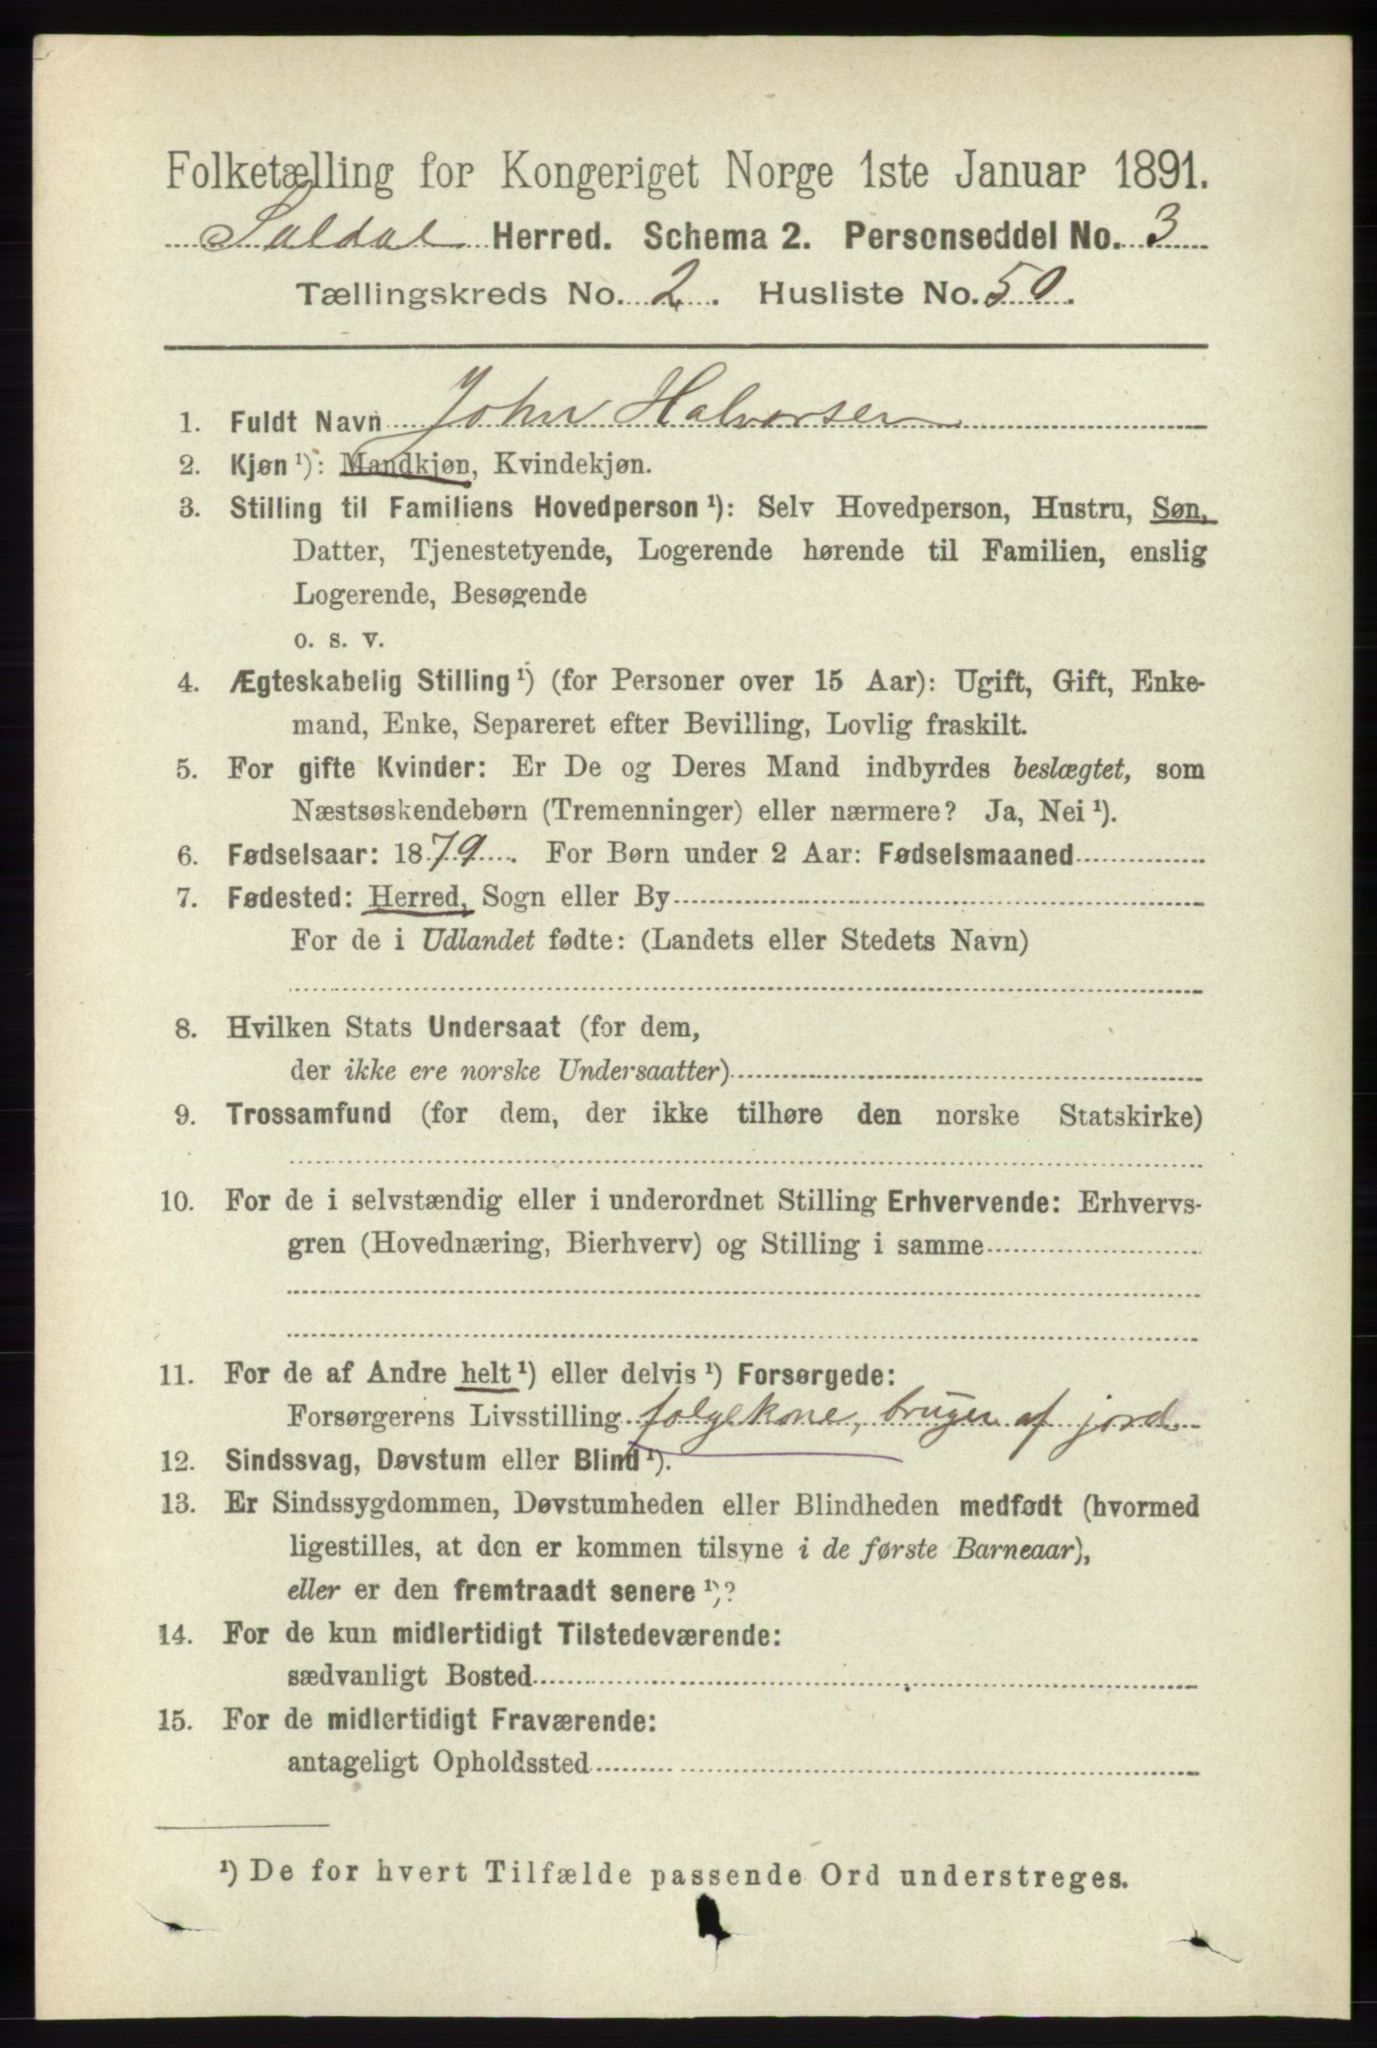 Folketælling for Kongeriget Norge 1ste Januar 1891.
Suldal Herred. Schema 2. Personseddel No. 3
Tællingskreds No. 2. Husliste No. 50.
1. Fuldt Navn John Halvorsen
2. Kjøn ¹): Mandkjøn, Kvindekjøn.
3. Stilling til Familiens Hovedperson ¹): Selv Hovedperson, Hustru, Søn,
Datter, Tjenestetyende, Logerende hørende til Familien, enslig
Logerende, Besøgende
o. s. v.
4. Ægteskabelig Stilling ¹) (for Personer over 15 Aar): Ugift, Gift, Enke-
mand, Enke, Separeret efter Bevilling, Lovlig fraskilt.
5. For gifte Kvinder: Er De og Deres Mand indbyrdes beslægtet, som
Næstsøskendebørn (Tremenninger) eller nærmere? Ja, Nei ¹).
6. Fødselsaar: 1879. For Børn under 2 Aar: Fødselsmaaned
7. Fødested: Herred, Sogn eller By
For de i Udlandet fødte: (Landets eller Stedets Navn)
8. Hvilken Stats Undersaat (for dem,
der ikke ere norske Undersaatter)
9. Trossamfund (for dem, der ikke tilhøre den norske Statskirke)
10. For de i selvstændig eller i underordnet Stilling Erhvervende: Erhvervs-
gren (Hovednæring, Bierhverv) og Stilling i samme
11. For de af Andre helt ¹) eller delvis ¹) Forsørgede:
Forsørgerens Livsstilling følgekone, bruger af jord
12. Sindssvag, Døvstum eller Blind ¹).
13. Er Sindssygdommen, Døvstumheden eller Blindheden medfødt (hvormed
ligestilles, at den er kommen tilsyne i de første Barneaar),
eller er den fremtraadt senere ¹)?
14. For de kun midlertidigt Tilstedeværende:
sædvanligt Bosted
15. For de midlertidigt Fraværende:
antageligt Opholdssted
¹) De for hvert Tilfælde passende Ord understreges.